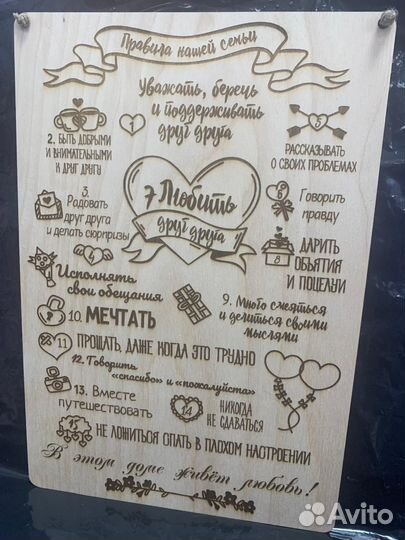 Правила нашей семьи
Уважать, беречь
и поддерживать
друг друга
1
2. БЫТЬ ДОБРЫМИ
И ВНИМАТЕЛЬНЫМИ
К ДРУГ ДРУГУ
5
РАССКАЗЫВАТЬ
О СВОИХ ПРОБЛЕМАХ
3.
Радовать
друг друга
и делать сюрпризы
7 Любить
друг друга
Говорить
правду
4
Исполнять
свои обещания
8
ДАРИТЬ
ОБЪЯТИЯ
И ПОЦЕЛУИ
9. Много смеяться
и делиться своими
мыслями
10. МЕЧТАТЬ
11 ПРОЩАТЬ, ДАЖЕ КОГДА ЭТО ТРУДНО
12. Говорить
«спасибо» и «пожалуйста»
13. Вместе
путешествовать
14
НИКОГДА
НЕ СДАВАТЬСЯ
15
НЕ ЛОЖИТЬСЯ СПАТЬ В ПЛОХОМ НАСТРОЕНИИ
В этом доме живёт любовь!
Avito